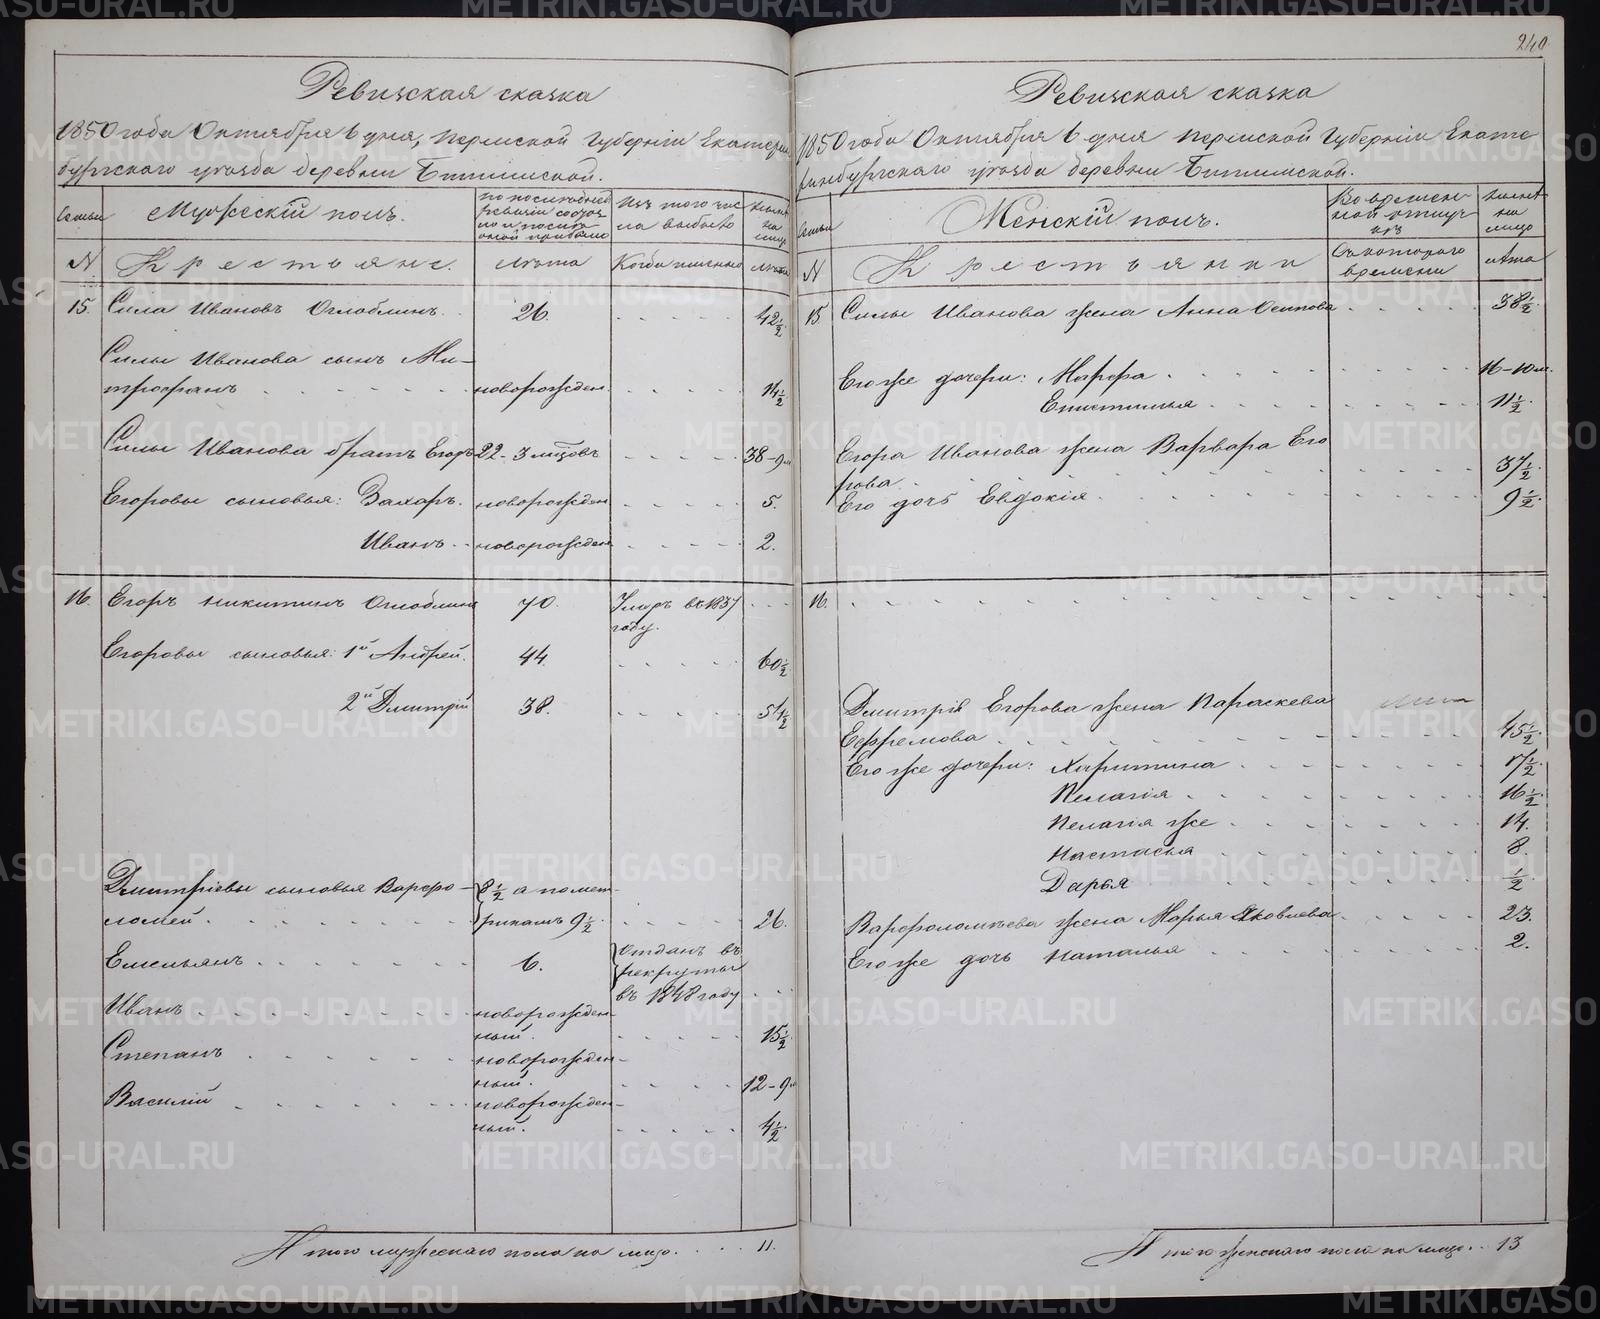 240
Ревизская сказка
1850 года Октября 6 дня, Пермской Губернiи Екатерин
бургскаго уѣзда деревни Битимской.
Семьи
Мужескiй полъ.
По последней
ревизiи состоя
ло и после
оной прибыло
Изъ того чис
ла выбыло
Ныне
на
лицо
№
Крестьяне.
Лѣта
Когда именно
Лѣта
15. Сила Ивановъ Оглоблинъ. 26. 42½
Силы Иванова сынъ Ми-
трофанъ новорожден. 14½
Силы Иванова братъ Егоръ 22-3 мѣсцовъ 38-9м
Егоровы сыновья: Захаръ. новорожден 5.
Иванъ новорожден 2.
16. Егоръ Никитинъ Оглоблинъ 70. Умеръ въ 1837
году.
Егоровы сыновья: 1й Андрей. 44. 60½
2й Дмитрiй 38. 54½
Дмитрiевы сыновья Варфо-
ломей. 8½ а помет-
рикамъ 9½ 26.
Емельянъ 6. Отданъ въ
рекруты
въ 1848 году
Иванъ новорожден-
ный. 15½
Степанъ новорожден-
ный. 12-9м
Василiй новорожден-
ный. 4½
Итого мужескаго пола на лицо. 11.
Ревизская сказка
1850 года Октября 6 дня Пермской Губернiи Екате
ринбургскаго уѣзда деревни Битимской.
Семьи
Женскiй полъ.
Во времен-
ной отлуч-
кѣ
Ныне
на
лицо
№
Крестьянки
Съ котораго
времени
Лѣта
15. Силы Иванова жена Анна Осипова 38½
Его же дочери: Марфа 16-10м.
Епистимья 11½
Егора Иванова жена Варвара Его
рова 37½
Его дочь Евдокiя 9½
16.
Дмитрiя Егорова жена Параскева
Ефремова 45½
Его же дочери: Харитина 17½
Пелагiя 16½
Пелагiя же 14.
Настасья 8
Дарья ½
Варфоломѣева жена Марья Яковлева 23.
Его же дочь Наталья 2.
Итого женскаго пола на лицо. 13
METRIKI.GASO-URAL.RU